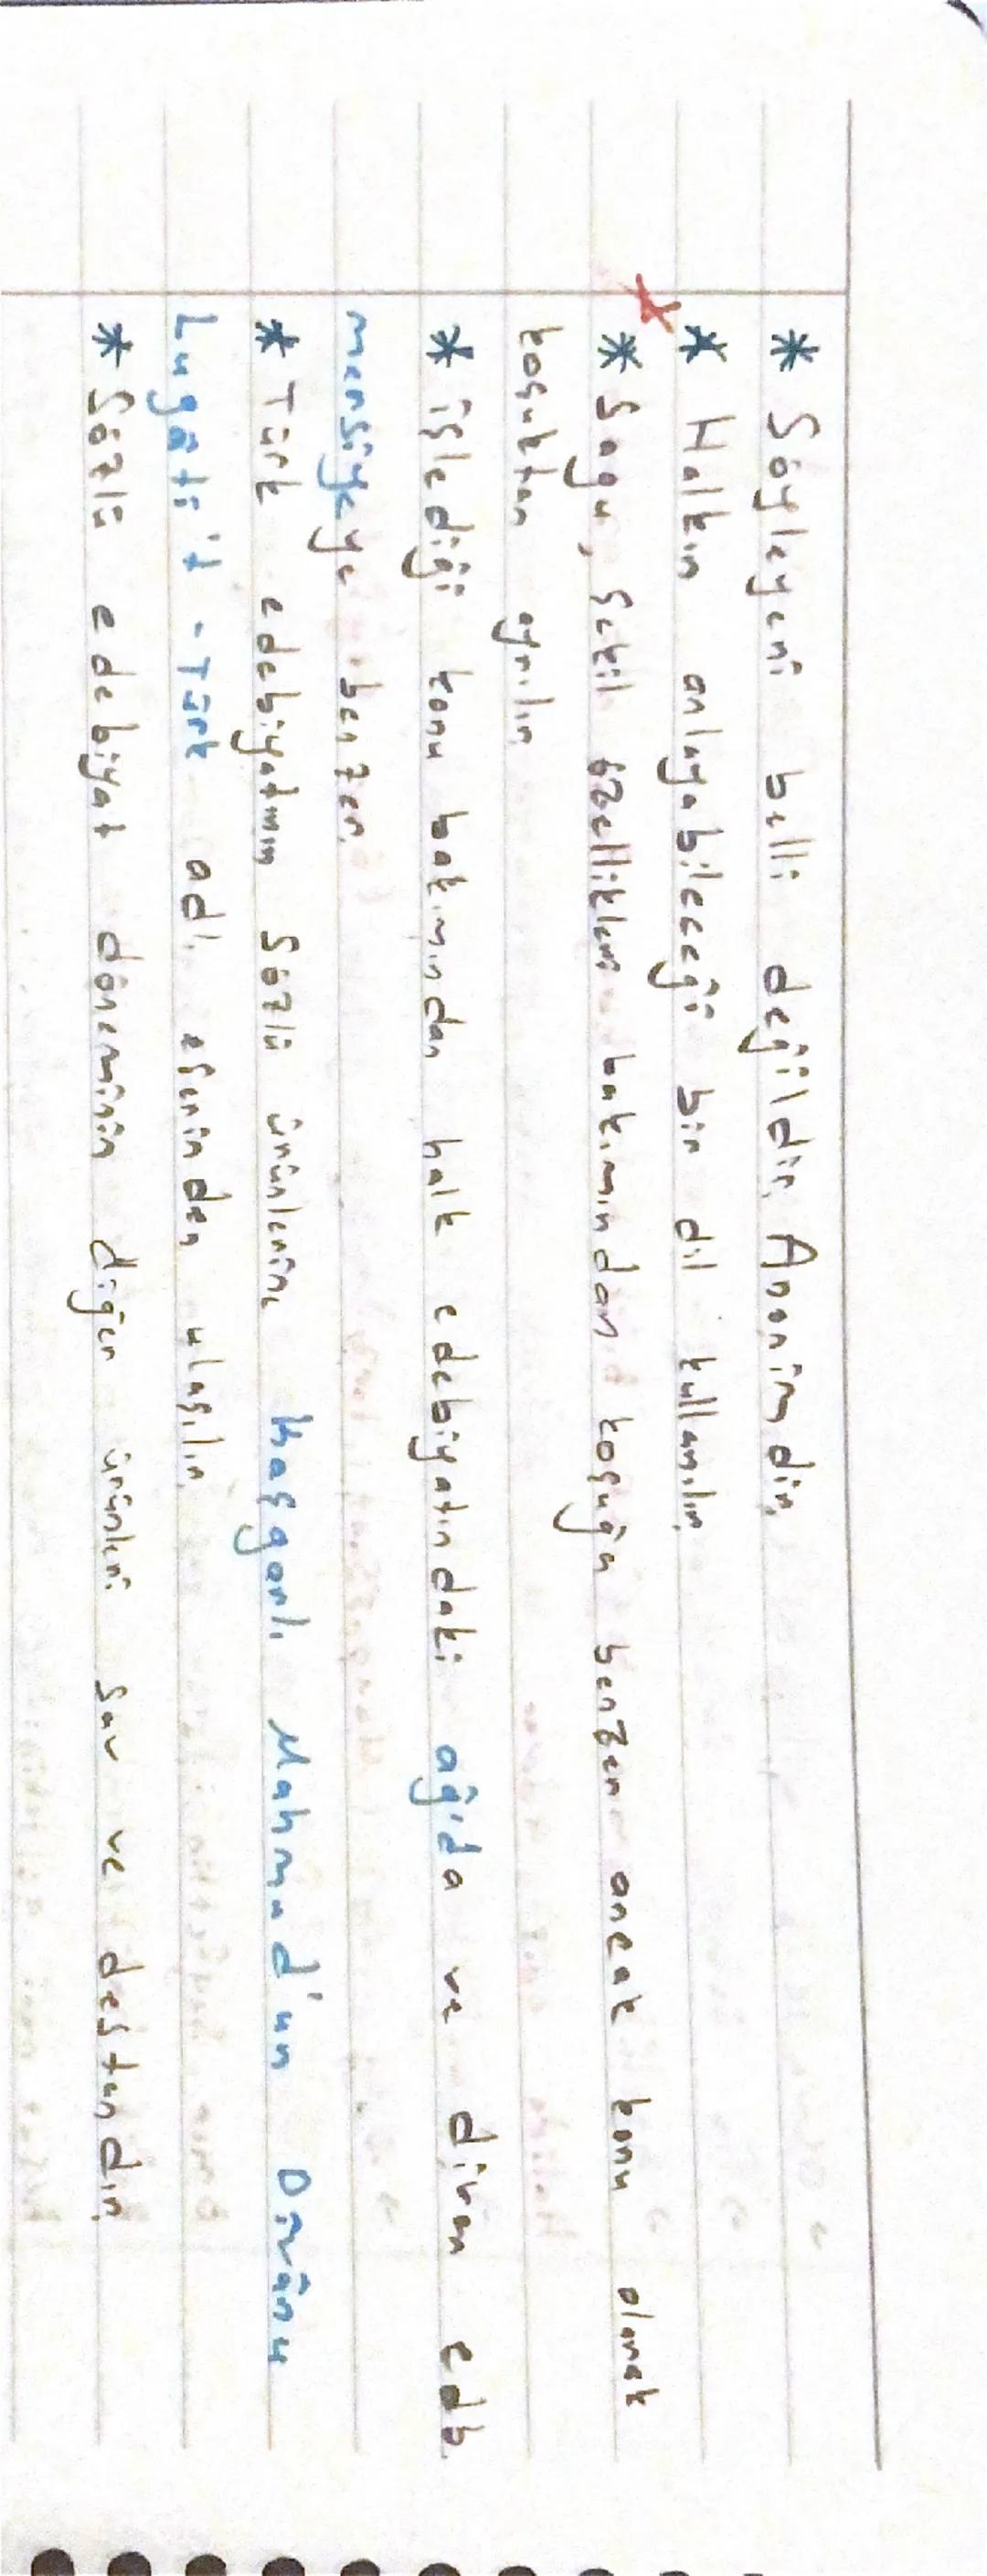 * Söyleyeni belli değildir, Anonimdir.
* Halkın anlayabileceği bir dil kullanılır.
* Sagu, şekil özellikleri bakımından koşuğu benzer ancak konu olarak
koşuktan ayrılır.
* İşlediği konu bakımından halk edebiyatındaki ağıda ve divan edb.
mersiyeye benzer.
* Türk edebiyatının Sözlü ürünlerine Kaşgarlı Mahmud'un Dîvânu
Lugâti't-Türk adlı eserinden ulaşılır.
* Sözlü edebiyat döneminin diğer ürünleri sav ve destandır.